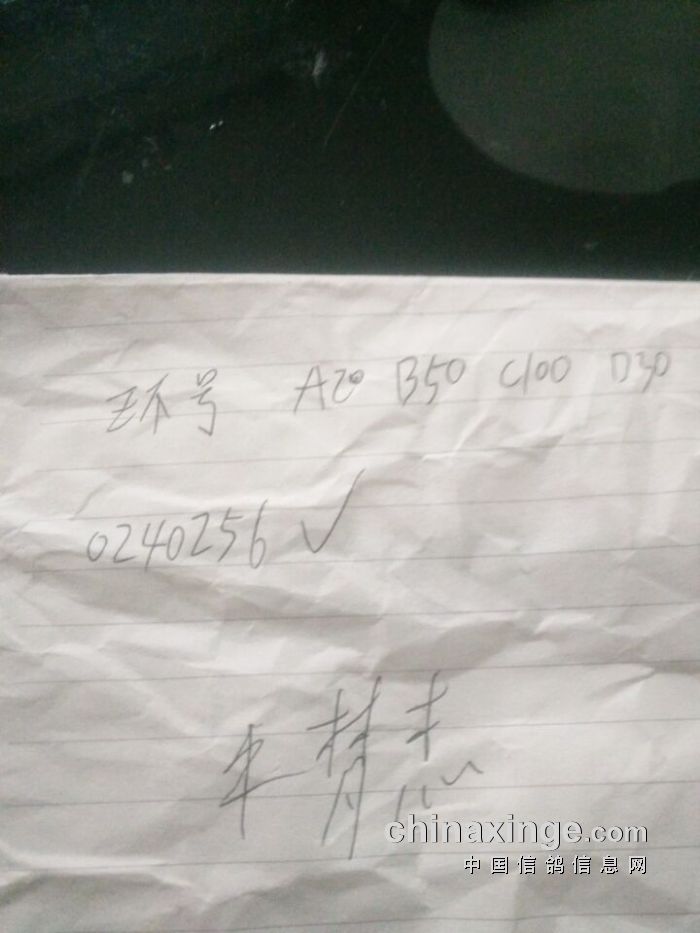 环号 A20 B50 C100 D30
0240256 ✓
chinaxinge.com
中国信鸽信息网